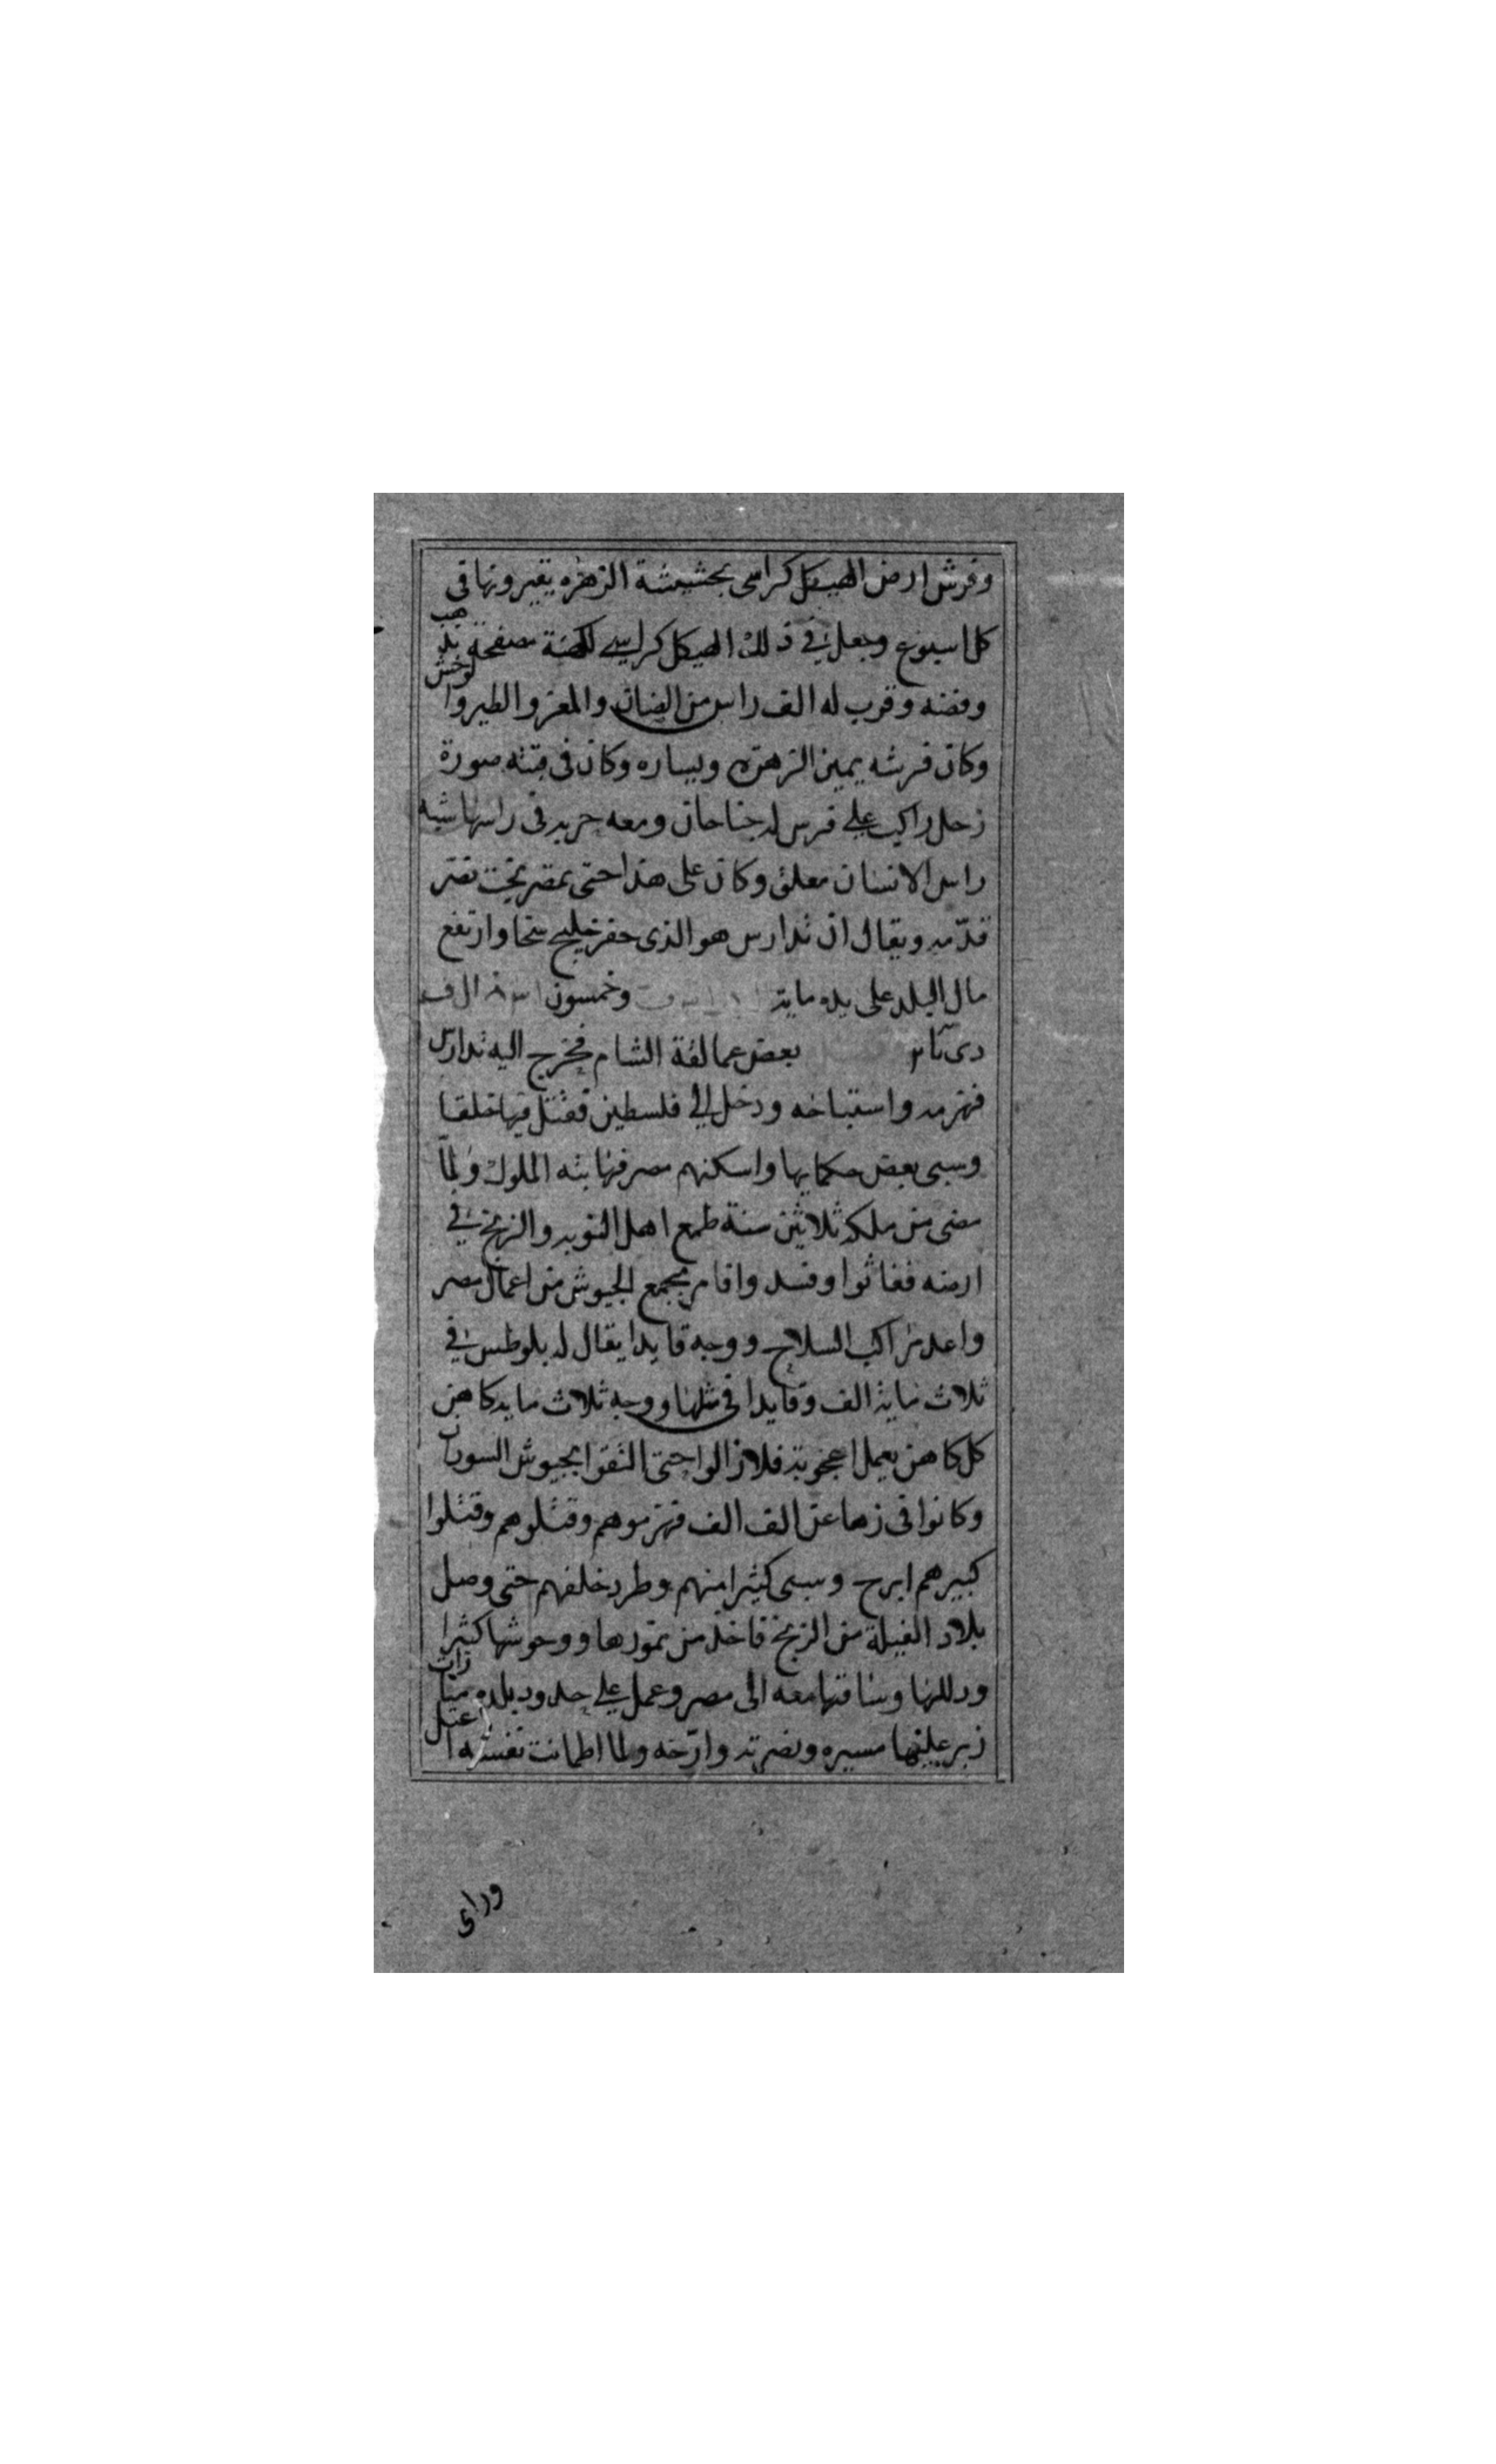 وفرش ارض الهيكل كراسى بحشيشة الزهره يغيرونها فى
كل اسبوع وجعل في ذلك الهيكل كراسي للكهنة مصفحة بذهب
وفضه وقرب له الف راس من الضان والمعز والطير والوحش
وكان فرشه يمين الزهره ويساره وكان فى قبته صورة
زحل راكب علي فرس له جناحان ومعه حربه فى راسها شبه
راس الانسان معلق وكان على هذا حتى بمصر بخت نصر
فدّمه ويقال ان تدارس هو الذى حفر خليج سخا وارتفع
مال البلد على يده مايه وخمسون الف
بعض عمالقة الشام فخرج اليه تدارس
فهزمه واستباحه ودخل الي فلسطين فقتل فيها خلقا
وسبى بعض حكمايها واسكنهم مصر فهابته الملوك ولمّا
مضى من ملكه ثلاثين سنة طمع اهل النوبه والزنج في
ارضه فغاثوا وفسد واقام بجمع الجيوش من اعمال مصر
واعد مراكب السلاح ووجه قايدا يقال له بلوطس في
ثلاث ماية الف وقايدا فى مثلها ووجه ثلاث مايه كاهن
كل كاهن يعمل اعجوبته فلازالوا حتى التقوا بجيوش السودان
وكانوا فى زها عن الف الف فهزموهم وقتلوهم وقتلوا
كبيرهم ابرح وسبى كثيرا منهم وطرد خلفهم حتى وصل
بلاد الفيلة من الزنج فاخذ من نمورها ووحوشها كثيرا
وذللها وساقها معه الى مصر وعمل علي حدود بلده منارات
زبر عليها مسيره ونصرته وارّخه ولما اطمانت نفسه اعتل
وراى